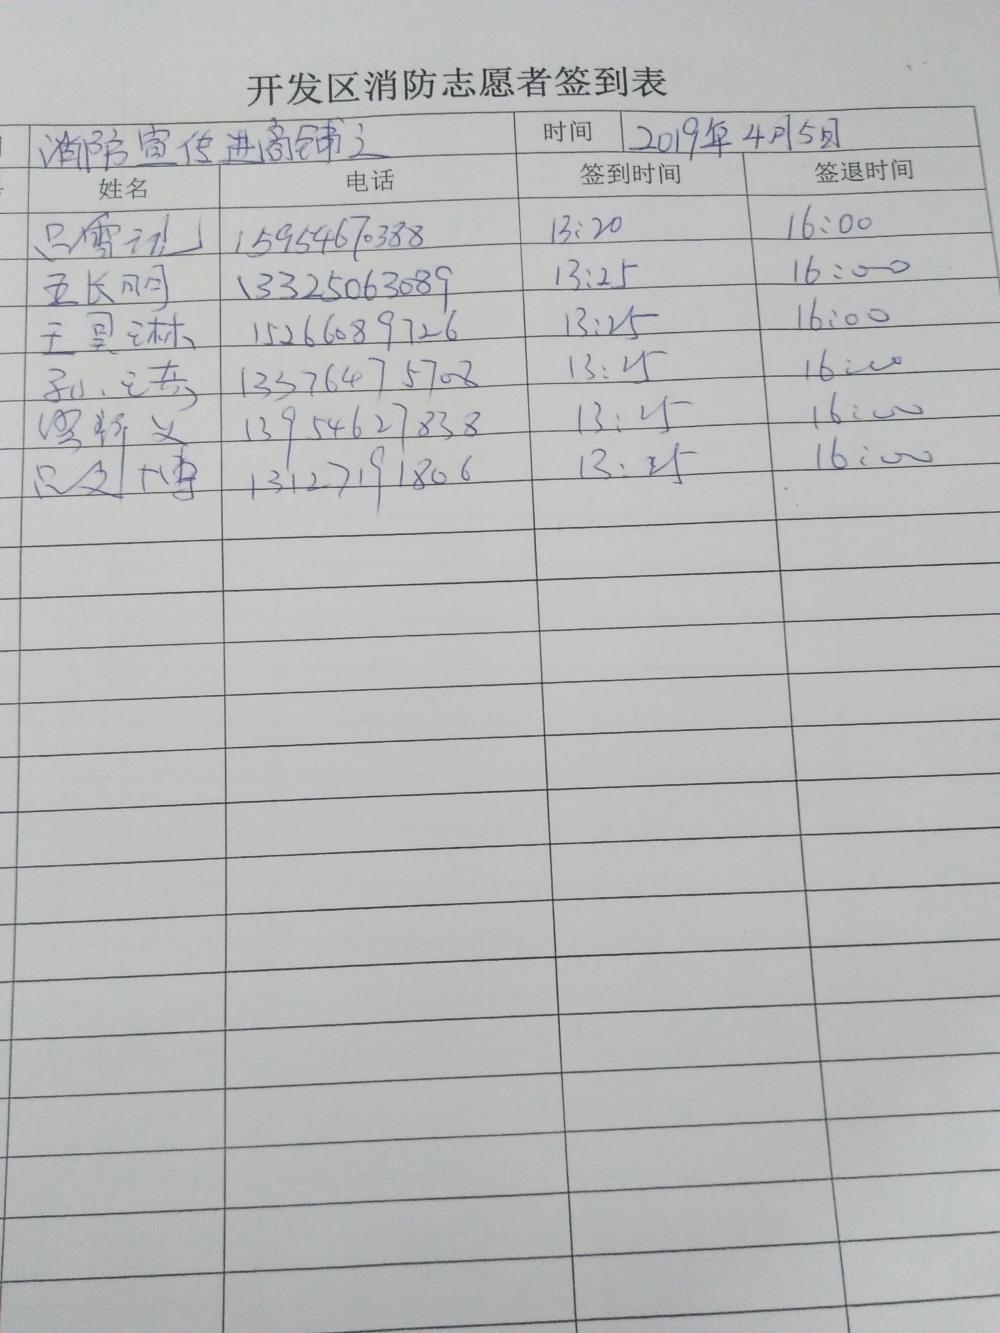 开发区消防志愿者签到表
消防宣传进商铺 时间 2019年4月5日
姓名 电话 签到时间 签退时间
15954670388 13:20 16:00
王长明 13325063089 13:25 16:00
王昊 15266089726 13:25 16:00
孙 13376475708 13:25 16:00
13954627838 13:25 16:00
13127191806 13:25 16:00